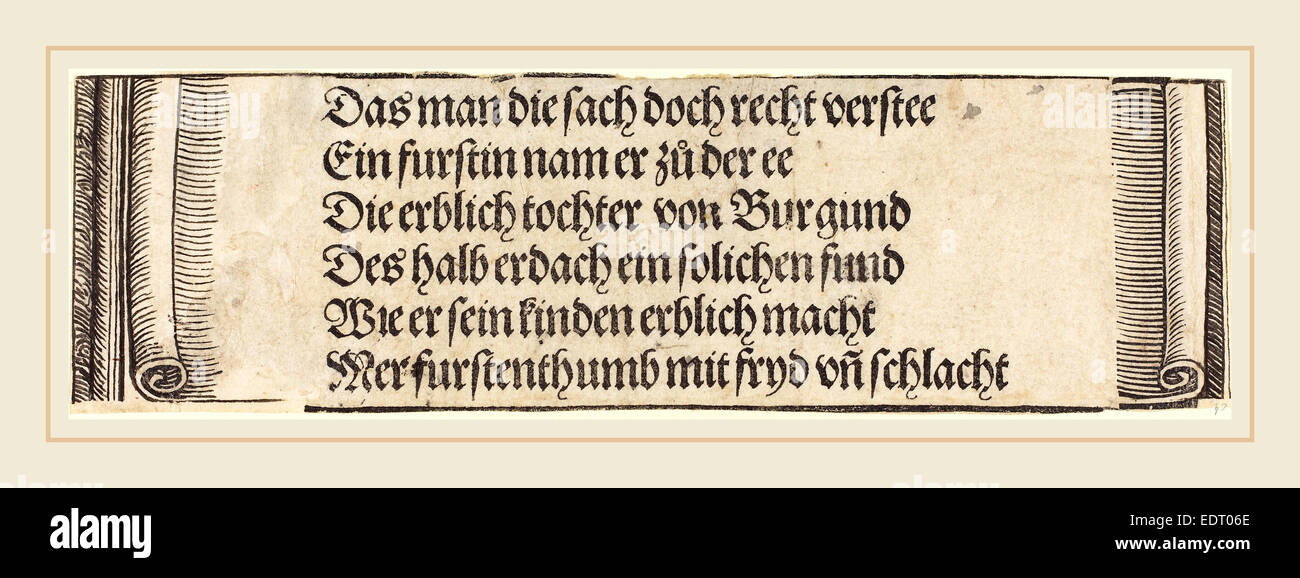 Das man die sach doch recht verstee
Ein furstin nam er zů der ee
Die erblich tochter von Burgund
Des halb erdach ein solichen fund
Wie er sein kinden erblich macht
Mer furstenthumb mit fryd vn̄ schlacht
alamy
alamy
Image ID: EDT06E
www.alamy.com